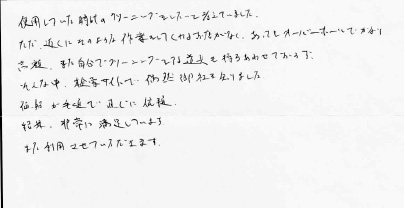 使用していた時計のクリーニングをしたいと考えてました。
ただ、近くにそのような作業をしてくれるお店がなく、あってもオーバーホールでかなり
高額、また自分でクリーニングする道具を持ちあわせておらず、
そんな中、検索サイトで偶然御社を知りました。
価格が手頃で、すぐに依頼。
結果、非常に満足しています。
また利用させていただきます。